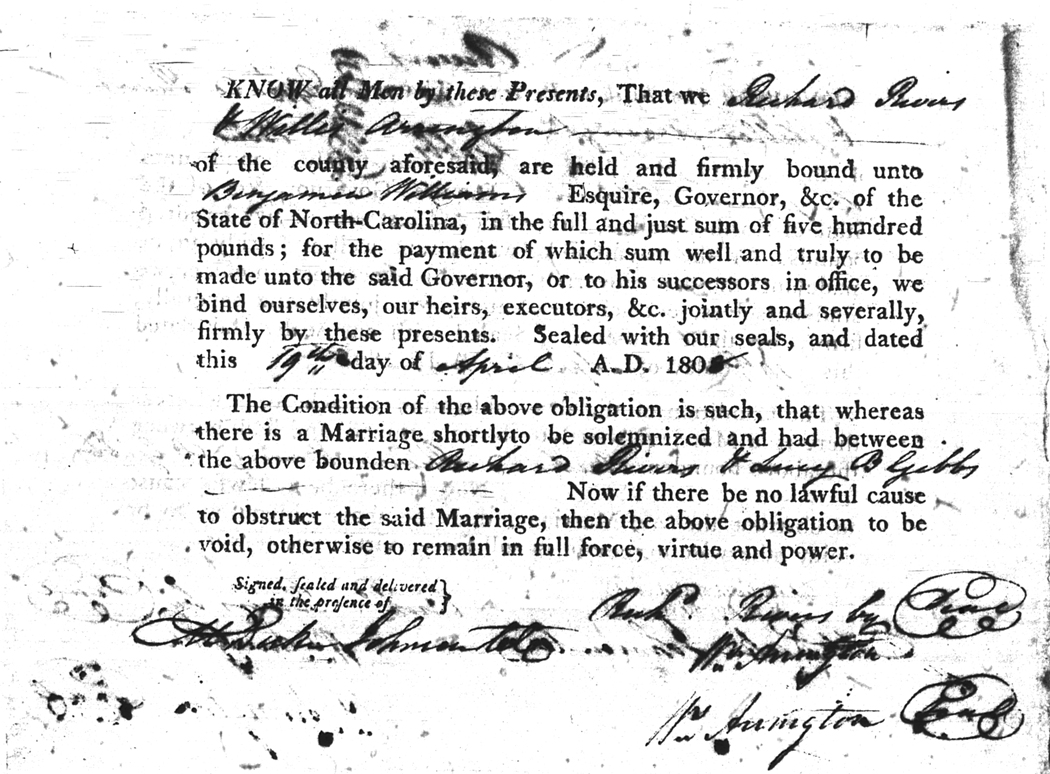 KNOW all Men by these Presents, That we Richard Rivers
& Willie Arrington
of the county aforesaid, are held and firmly bound unto
Benjamin Williams Esquire, Governor, &c. of the
State of North-Carolina, in the full and just sum of five hundred
pounds; for the payment of which sum well and truly to be
made unto the said Governor, or to his successors in office, we
bind ourselves, our heirs, executors, &c. jointly and severally,
firmly by these presents. Sealed with our seals, and dated
this 19th day of April A.D. 180
The Condition of the above obligation is such, that whereas
there is a Marriage shortlyto be solemnized and had between
the above bounden Richard Rivers & Lucy B Gibbs
Now if there be no lawful cause
to obstruct the said Marriage, then the above obligation to be
void, otherwise to remain in full force, virtue and power.
Signed, sealed and delivered
in the presence of
Richd. Rivers by Seal
Wm Arrington
Johnson
Wm Arrington Seal